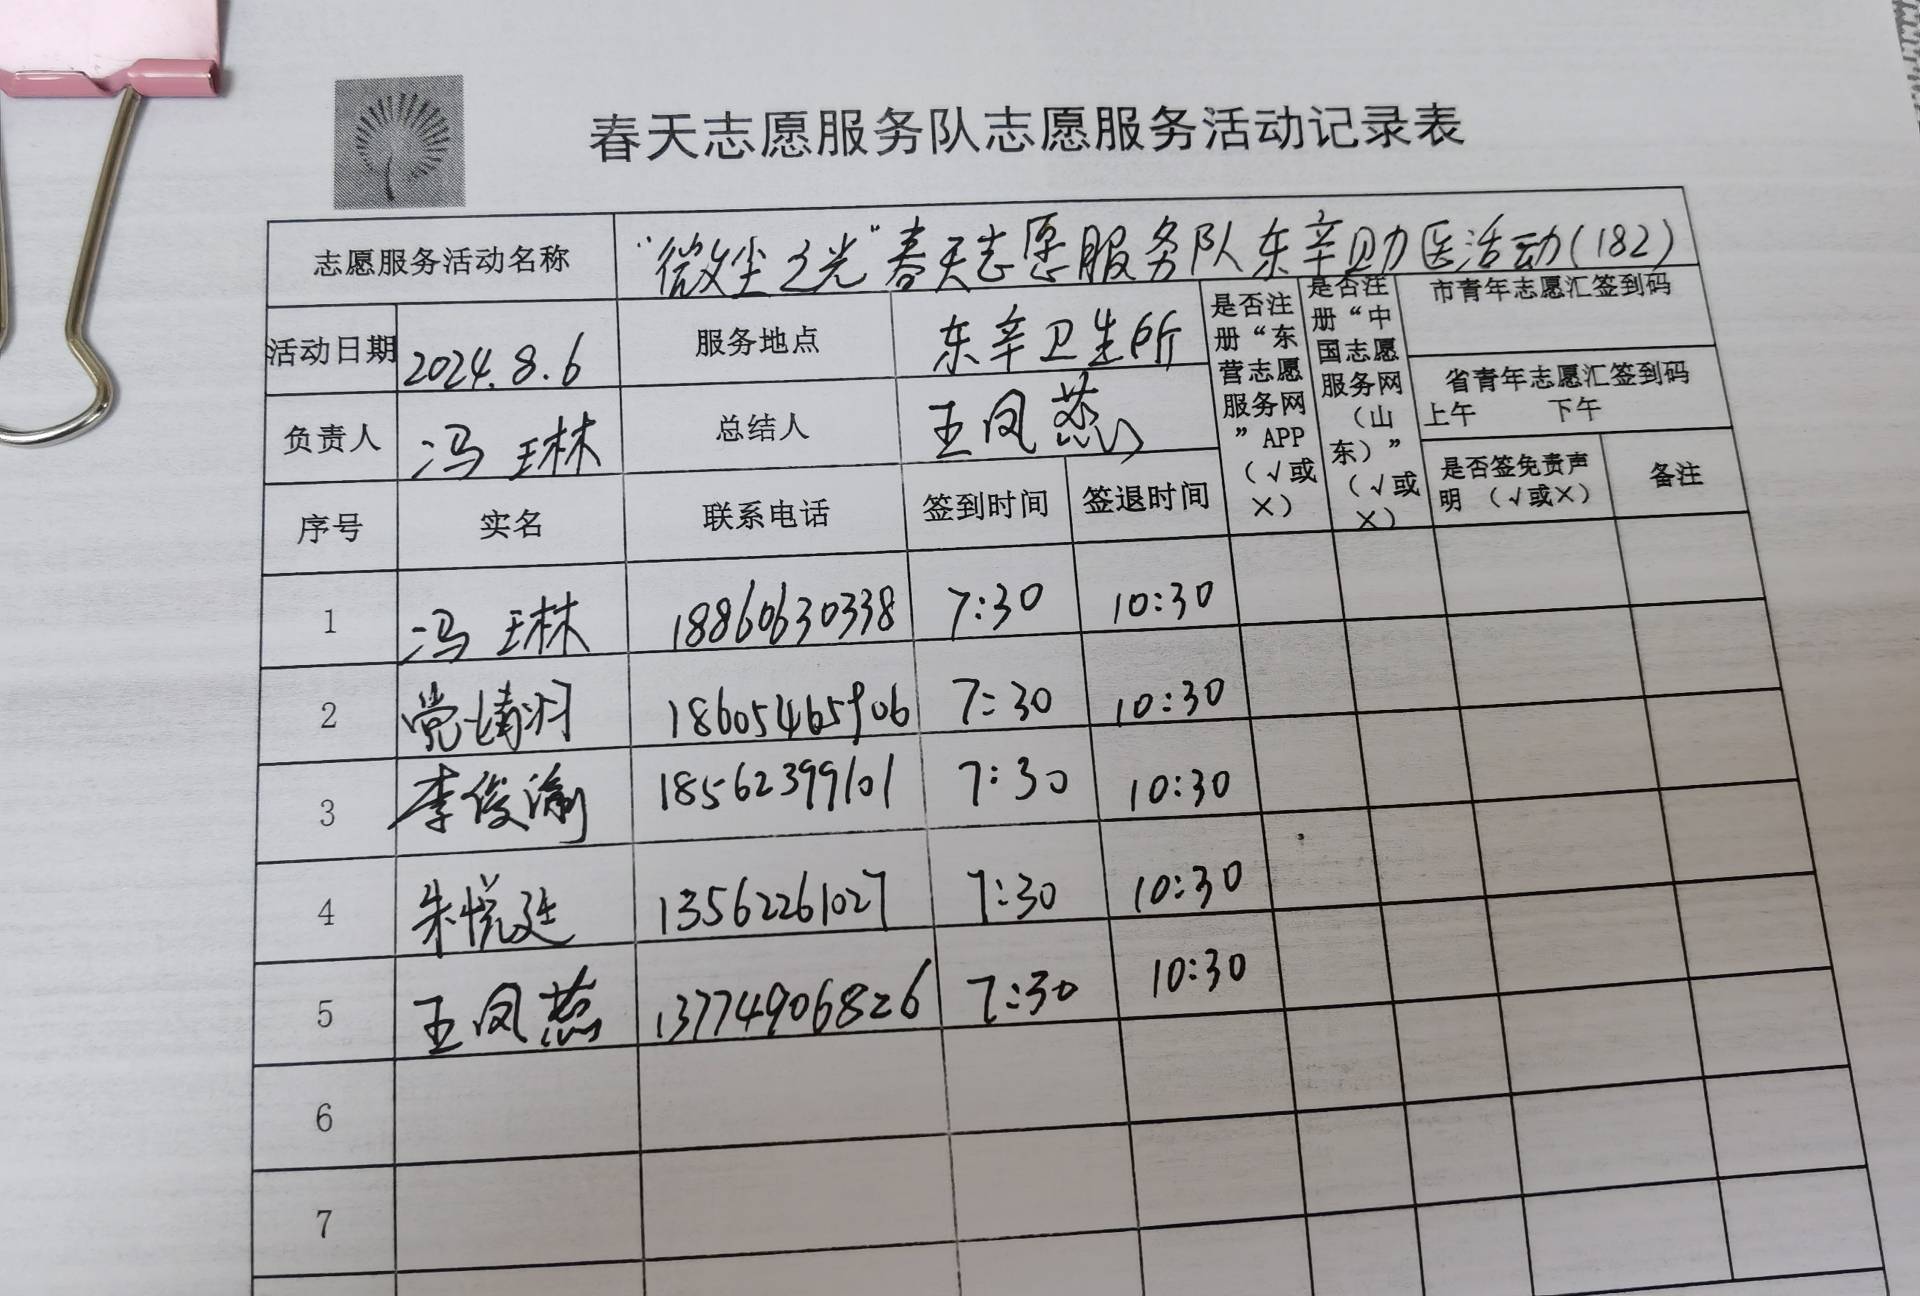 春天志愿服务队志愿服务活动记录表
志愿服务活动名称 “微尘之光”春天志愿服务队东辛助医活动(182)
活动日期 2024.8.6 服务地点 东辛卫生所
是否注册“东营志愿服务网”APP（√或×）
是否注册“中国志愿服务网（山东）”（√或×）
市青年志愿汇签到码
省青年志愿汇签到码
上午 下午
负责人 冯琳 总结人 王凤燕
序号 实名 联系电话 签到时间 签退时间 是否签免责声明（√或×） 备注
1 冯琳 18860630338 7:30 10:30
2 党婧羽 18605465906 7:30 10:30
3 李俊渝 18562399101 7:30 10:30
4 朱悦廷 13562261027 7:30 10:30
5 王凤燕 13774906826 7:30 10:30
6
7